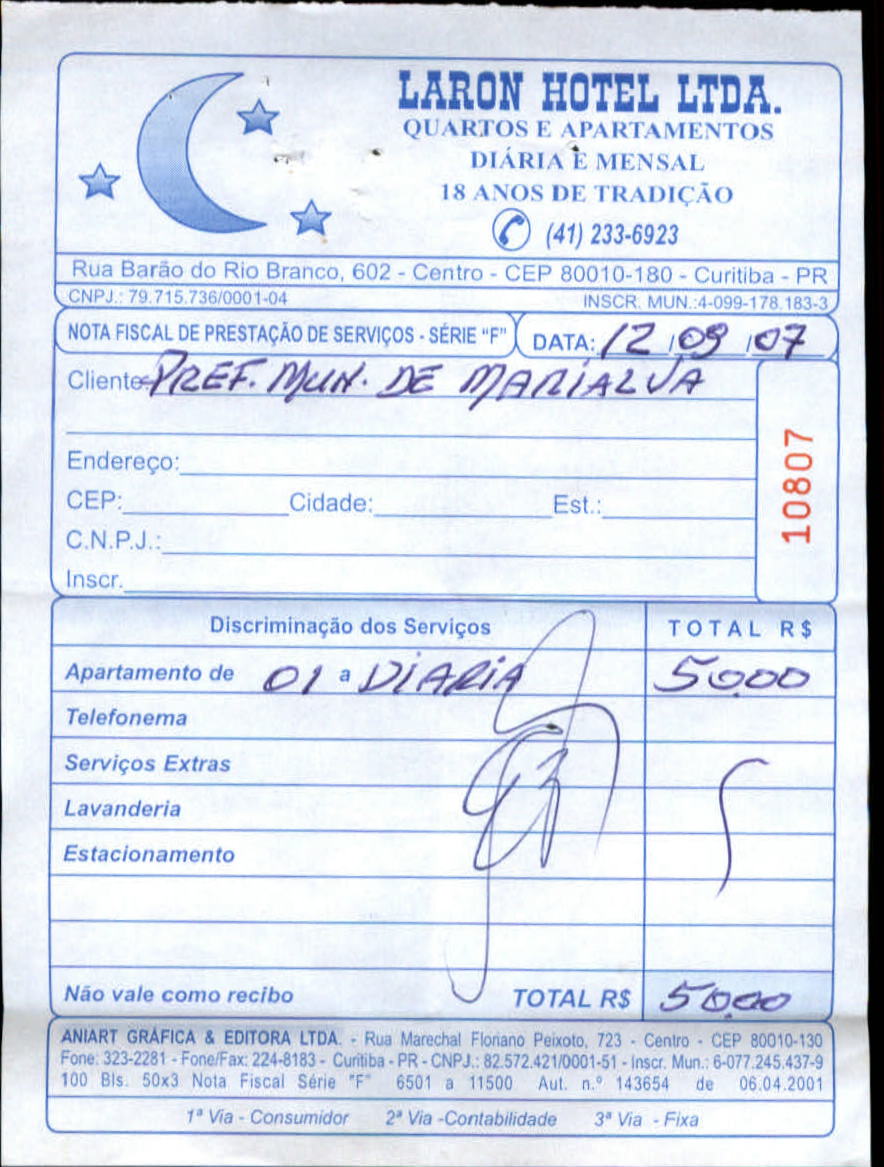 LARON HOTEL LTDA.
QUARTOS E APARTAMENTOS
DIÁRIA E MENSAL
18 ANOS DE TRADIÇÃO
(41) 233-6923
Rua Barão do Rio Branco, 602 - Centro - CEP 80010-180 - Curitiba - PR
CNPJ.: 79.715.736/0001-04 INSCR. MUN.:4-099-178.183-3
NOTA FISCAL DE PRESTAÇÃO DE SERVIÇOS - SÉRIE "F" DATA: 12/09/07
Cliente PREF. MUN. DE MARIALVA
10807
Endereço:
CEP: Cidade: Est.:
C.N.P.J.:
Inscr.
Discriminação dos Serviços TOTAL R$
Apartamento de 01 a DIARIA 50,00
Telefonema
Serviços Extras
Lavanderia
Estacionamento
Não vale como recibo TOTAL R$ 50,00
ANIART GRÁFICA & EDITORA LTDA. - Rua Marechal Floriano Peixoto, 723 - Centro - CEP 80010-130
Fone: 323-2281 - Fone/Fax: 224-8183 - Curitiba - PR - CNPJ.: 82.572.421/0001-51 - Inscr. Mun.: 6-077.245.437-9
100 Bls. 50x3 Nota Fiscal Série "F" 6501 a 11500 Aut. n.º 143654 de 06.04.2001
1ª Via - Consumidor 2ª Via -Contabilidade 3ª Via - Fixa